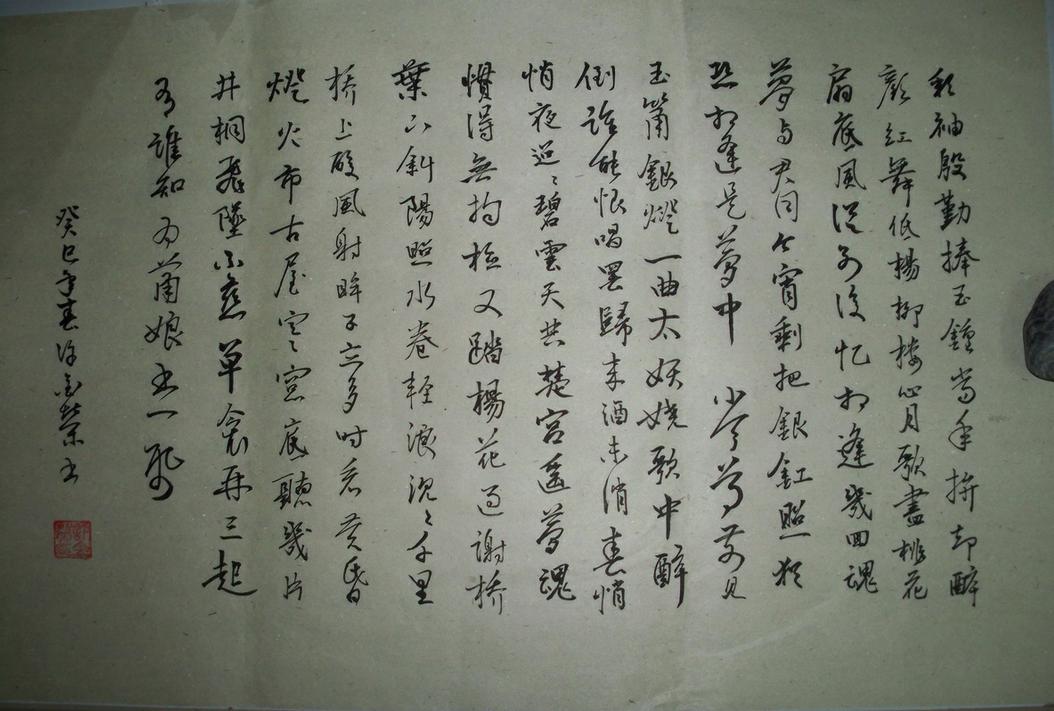 彩袖殷勤捧玉鍾當年拚却醉
顏紅舞低楊柳樓心月歌盡桃花
扇底風從別後憶相逢幾回魂
夢與君同今宵剩把銀釭照猶
恐相逢是夢中 小令尊前見
玉簫銀燈一曲太妖嬈歌中醉
倒誰能恨唱罷歸來酒未消春悄
悄夜迢々碧雲天共楚宮遙夢魂
慣得無拘檢又踏楊花過謝橋
葉下斜陽照水卷輕浪沉々千里
橋上酸風射眸子立多時看黃昏
燈火市古屋寒々窗底聽幾片
井桐飛墜不戀單衾再三起
有誰知為蕭娘書一紙
癸巳年春榮書